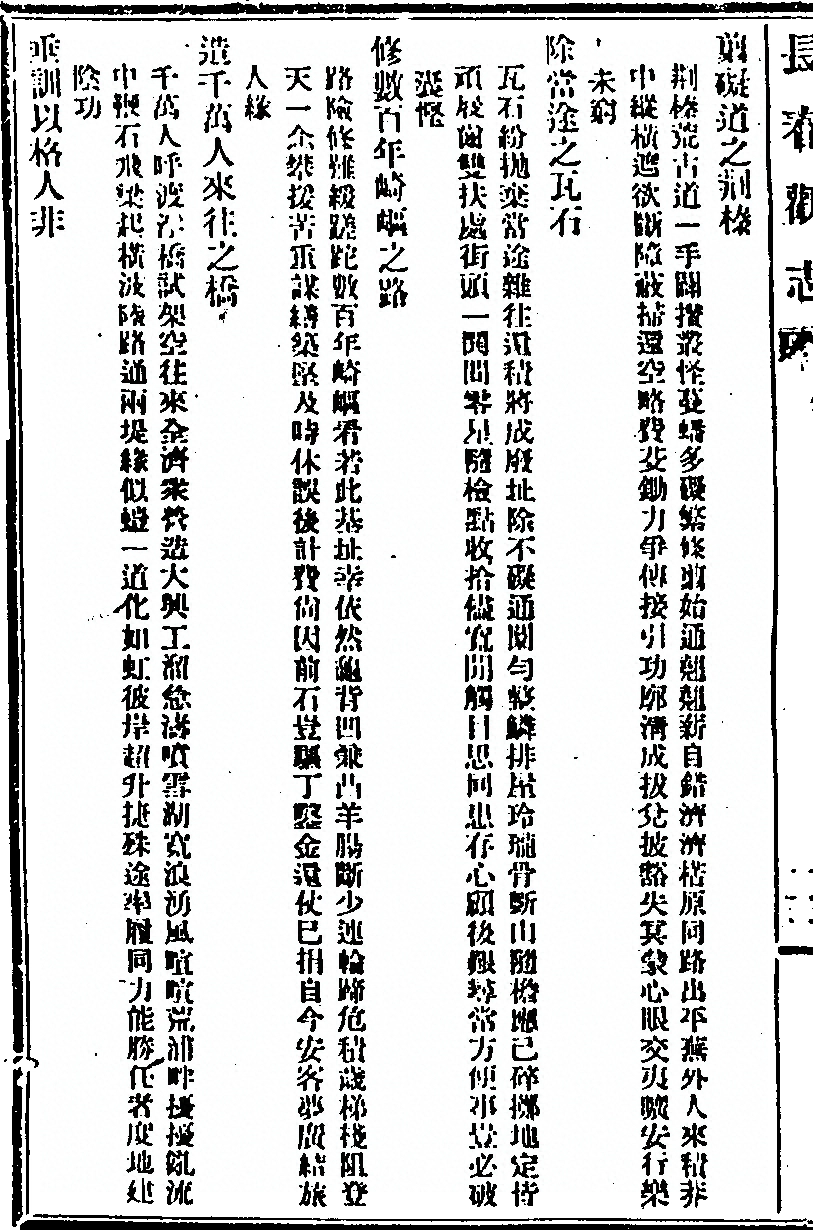 長春觀志
剪礙道之荊榛
荊榛荒古道一手闢叢怪蔓蟠多礙繁條剪始通翹翹薪自錯濟濟楛原同路出平蕪外人來積莽
中縱橫遮欲斷障蔽掃還空略費芟鋤力爭傳接引功廓清成拔兌披豁失冥蒙心眼交夷曠安行樂
未窮
除當途之瓦石
瓦石紛拋棄當途雜往還積將成廢址除不礙通闤勻整鱗排屋玲瓏骨斷山隨檐應已碎擲地定皆
頑展齒雙扶處街頭一閒零星隨檢點收拾儘寬閒觸目思同患存心顧後艱尋常方便事豈必破
慳
修數百年崎嶇之路
路險修難緩蹉跎數百年崎嶇看若此基址幸依然龜背凹兼凸羊腸斷少連輪蹄危積歲梯棧阻登
天一念攀援苦重謀繕築堅及時休誤後計費尚因前石豈驅丁鑿金還仗巳捐自今安客夢廣結旅
人緣
造千萬人來往之橋
千萬人呼渡浮橋試架空往來全濟衆營造大興工溜急濤噴雪湖寬浪湧風喧喧荒浦畔擾擾亂流
中鞭石飛梁起橫波陸路通兩堤緣似螘一道化如虹彼岸超升捷殊途率履同力能勝任者度地建
陰功
垂訓以格人非